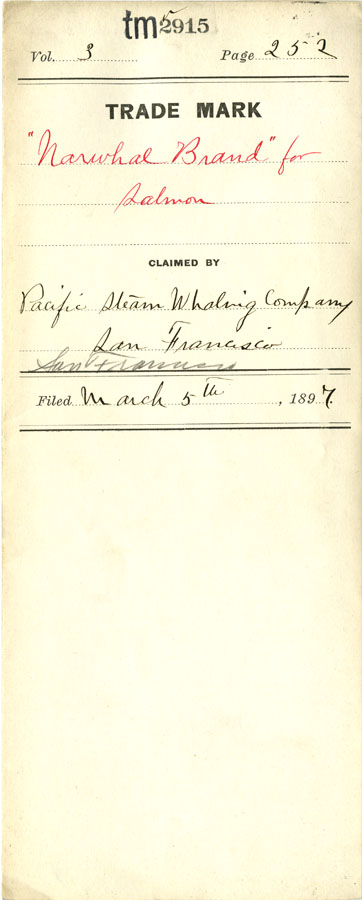 tm 2915
Vol. 3 Page 252
TRADE MARK
"Narwhal Brand" for
Salmon
CLAIMED BY
Pacific Steam Whaling Company
San Francisco
San Francisco
Filed March 5th, 1897.